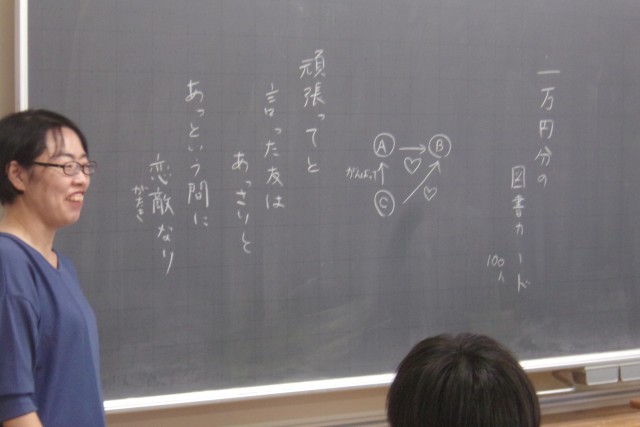 一万円分の
図書カード
100
人
A
B
がんばって
C
頑張ってと
言った友は
あっさりと
あっという間に
恋敵なり
がたき